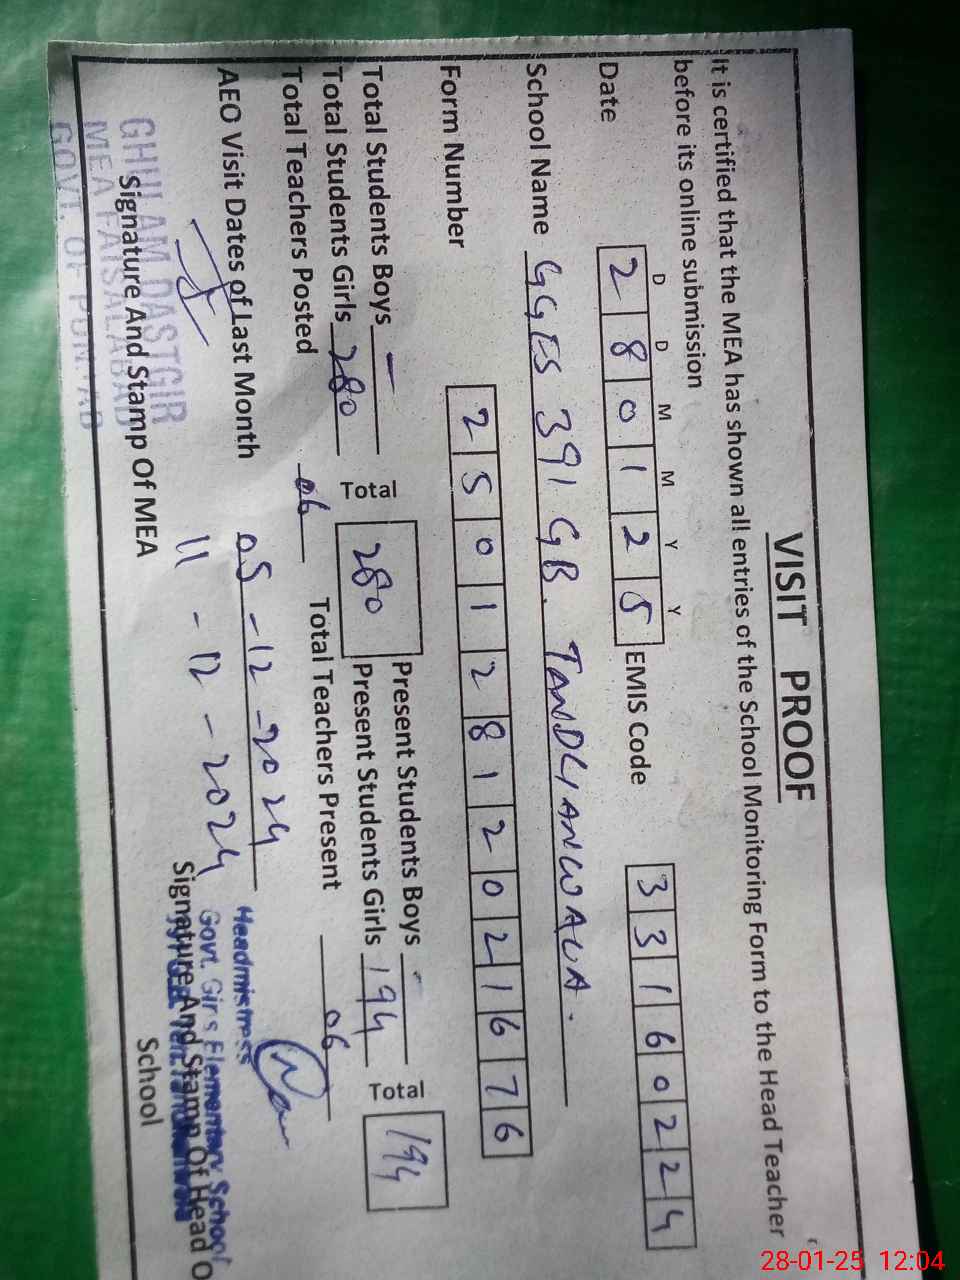 VISIT PROOF
It is certified that the MEA has shown all entries of the School Monitoring Form to the Head Teacher
before its online submission
D D M M Y Y
Date 2 8 0 1 2 5 EMIS Code 3 3 1 6 0 2 2 4
School Name GGES 391 GB. TANDLIANWALA.
Form Number 2 5 0 1 2 8 1 2 0 2 1 6 7 6
Total Students Boys - Total 280 Present Students Boys - Total 194
Total Students Girls 280 Present Students Girls 194
Total Teachers Posted 06 Total Teachers Present 06
AEO Visit Dates of Last Month 05-12-2024
11-12-2024
Headmistress
Govt. Girls Elementary School
GHULAM DASTGIR
MEA FAISALABAD
GOVT. OF PUNJAB
Signature And Stamp Of MEA
Signature And Stamp Of Head O
School
28-01-25 12:04